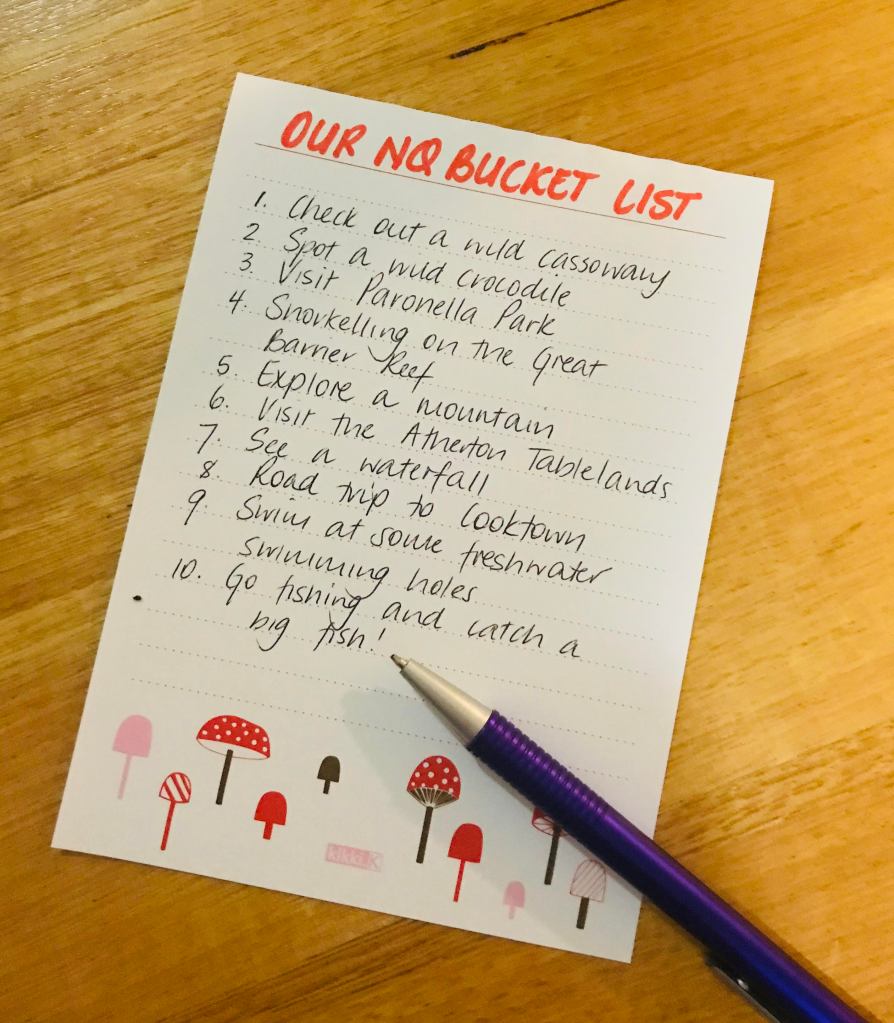 OUR NQ BUCKET LIST
1. Check out a wild cassowary
2 Spot a wild crocodile
3. Visit Paronella Park
4. Snorkelling on the Great
Barrier Reef
5. Explore a mountain
6. Visit the Atherton Tablelands
7. See a waterfall
8. Road trip to Cooktown
9 Swim at some freshwater
swimming holes
10. Go fishing and catch a
big fish!
kikki.K